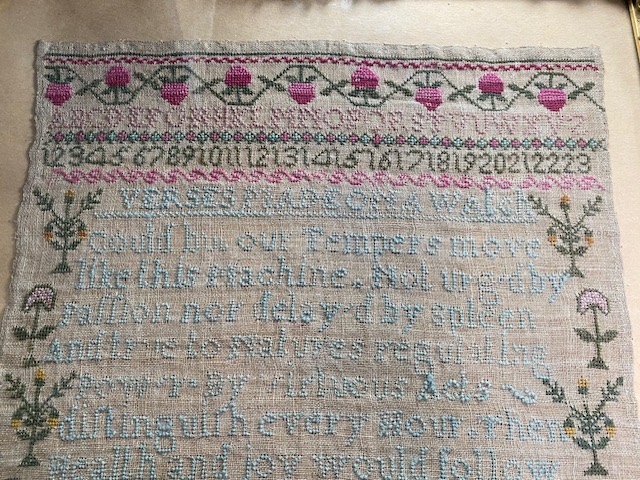 ABCDEFGHIKLMNOPQRSTUVWXYZ
1 2 3 4 5 6 7 8 9 10 11 12 13 14 15 16 17 18 19 20 21 22 23
VERSES MADE ON A Watch
Could but our Tempers move
like this Machine. Not urg'd by
passion nor delay'd by spleen
And true to Natures regulating
power By virtuous Acts
disting uish every Hour. then
health and joy would follow